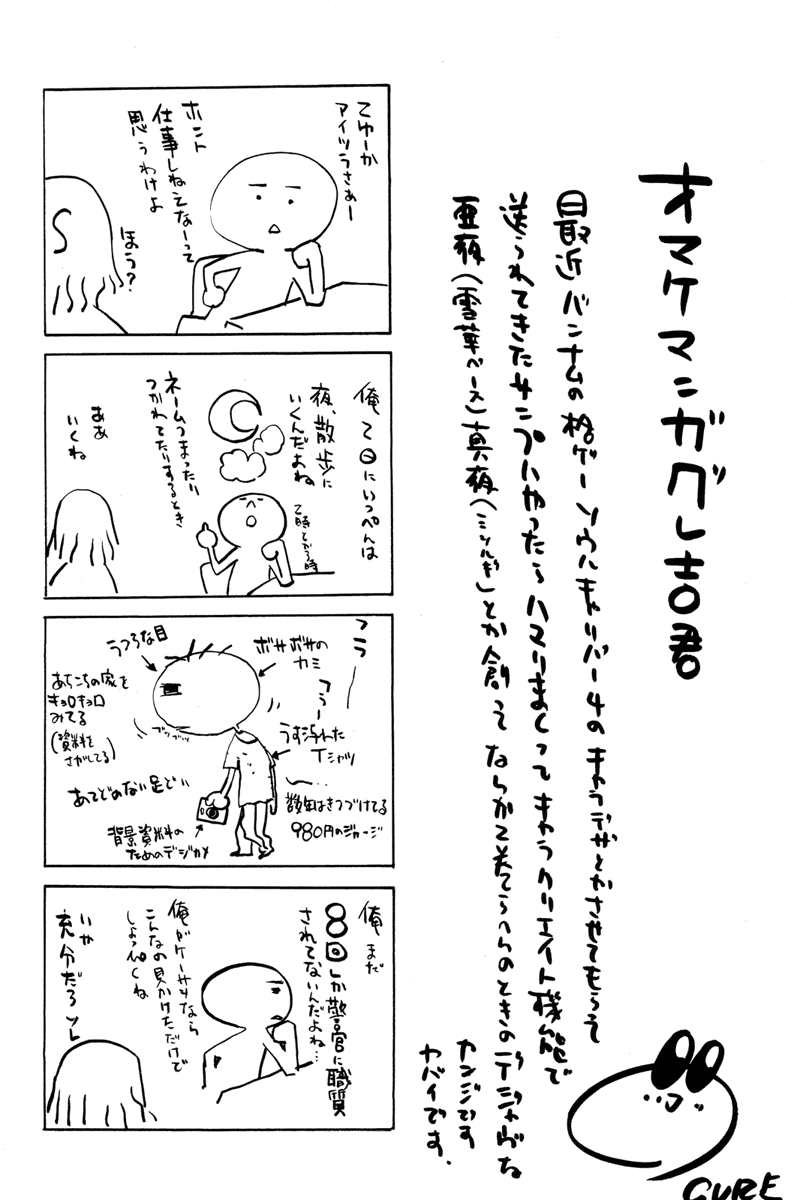 オマケマンガグレ吉君
最近バンナムの格ゲーソウルキャリバー4のキャラデザとかさせてもらって
送られてきたサンプルやったらハマりまくってキャラクリエイト機能で
亜夜(雪華ベース)真夜(ミツルギ)とか創って
カンジです
ヤバイです.
GURE
てゆーか
アイツらさぁー
ホント
仕事しねえなーって
思うわけよ
ほう?
S
俺て日にいっぺんは
夜、散歩に
いくんだよね
ネームつまったり
つかれてたりするとき
ああ
いくね
フラ
フラー
ボサボサの
カミ
うつろな目
あちこちの家を
キョロキョロ
みてる
(資料を
さがしてる)
ブツブツ
うす汚れた
Tシャツ
あてどのない足どり
数年はきつづけてる
980円のジャージ
背景資料の
ためのデジカメ
俺まだ
しか警官に職質
されてないんだよね…
俺がケーサツなら
こんなの見かけただけで
しょっぴくね
いや
充分だろソレ